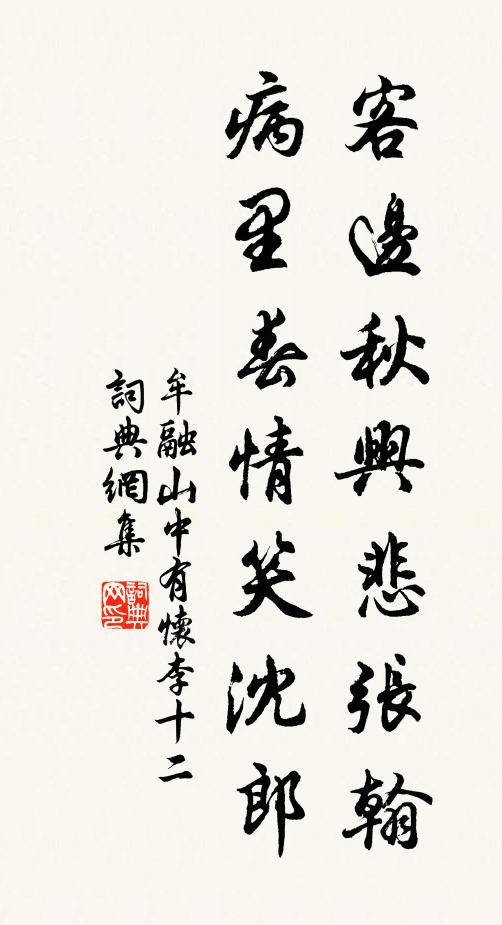 客邊秋興悲張翰
病里春情笑沈郎
牟融山中有懷李十二
詞典網集
詞典
网印